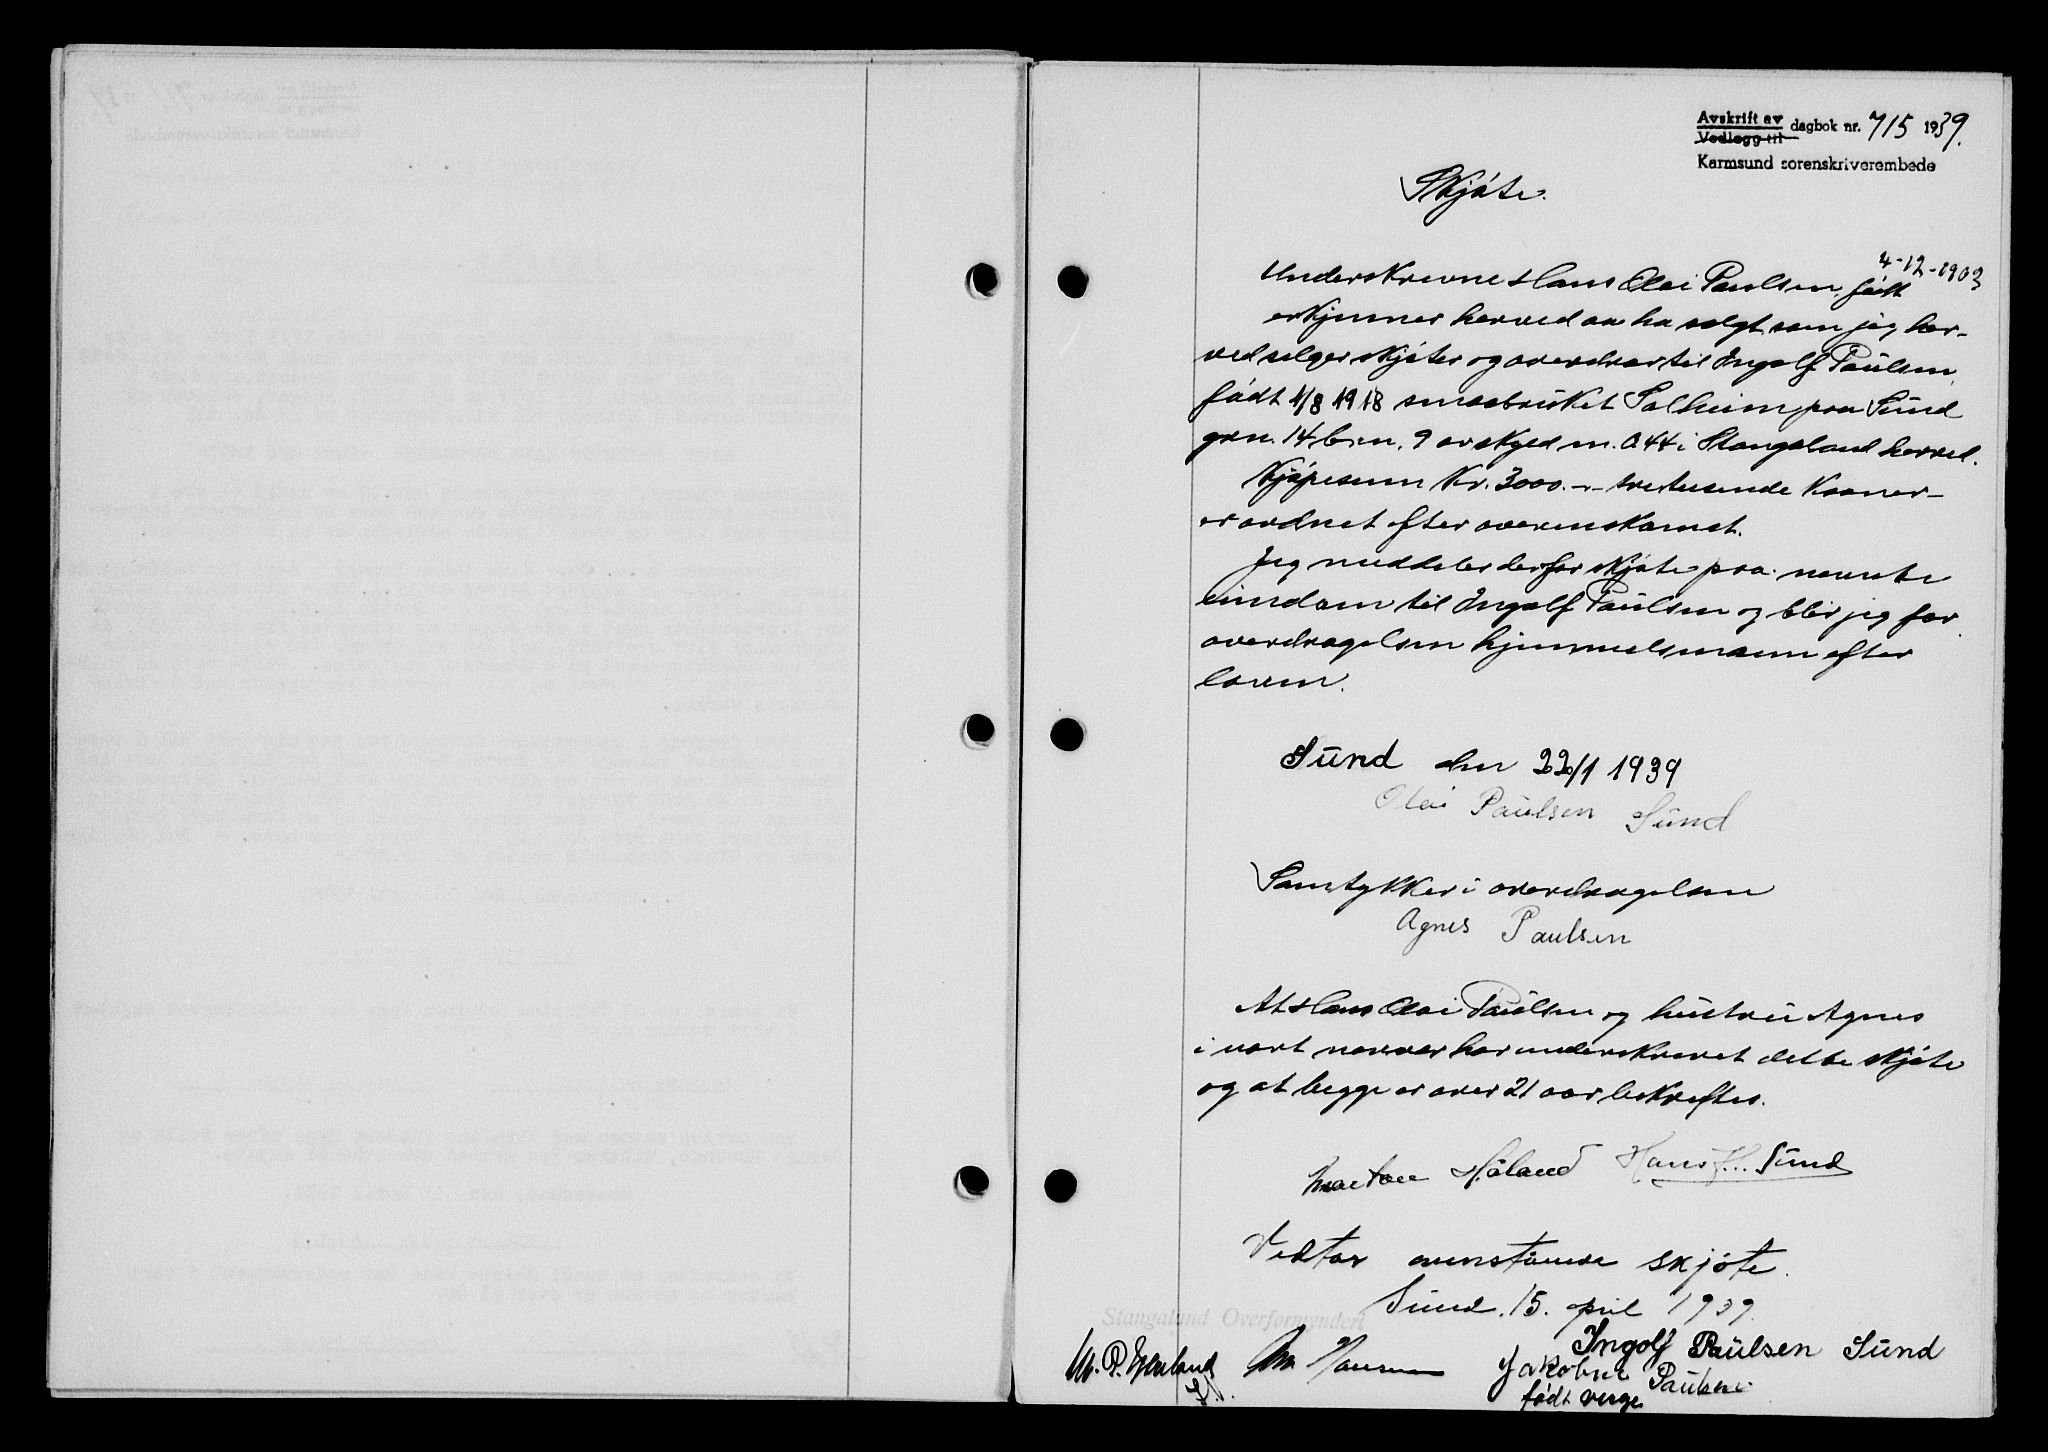 Avskrift av
Vedlegg til dagbok nr. 715 1939.
Karmsund sorenskriverembede
Skjöte.
4-12-1903
Underskrevne Hans Olai Paulsen födt
erkjenner herved aa ha solgt som jeg her-
ved selger skjöter og overdrar til Ingolf Paulsen
födt 1/8 1918 smaabruket Solheim paa Sund
grn. 14 br.n. 9 av skyld m. 0.44 i Stangaland herred.
Kjöpesum Kr. 3000.-- tretusende Kroner-
er ordnet efter overenskomst.
Jeg meddeler derfor skjöte paa nevnte
eiendom til Ingolf Paulsen og blir jeg for
overdragelsen hjemmelsmann efter
loven.
Sund den 22/1 1939
Olai Paulsen Sund
Samtykker i overdragelsen
Agnes Paulsen
At Hans Olai Paulsen og hustru Agnes
i vort nærvær har underskrevet dette skjöte
og at begge er over 21 aar bekreftes.
Håland Hans Sund
Vedtar ovenstående skjöte.
Sund. 15. april 1939.
Stangaland Overformynderi
Ingolf Paulsen Sund
Jakobine Paulsen
födt verge